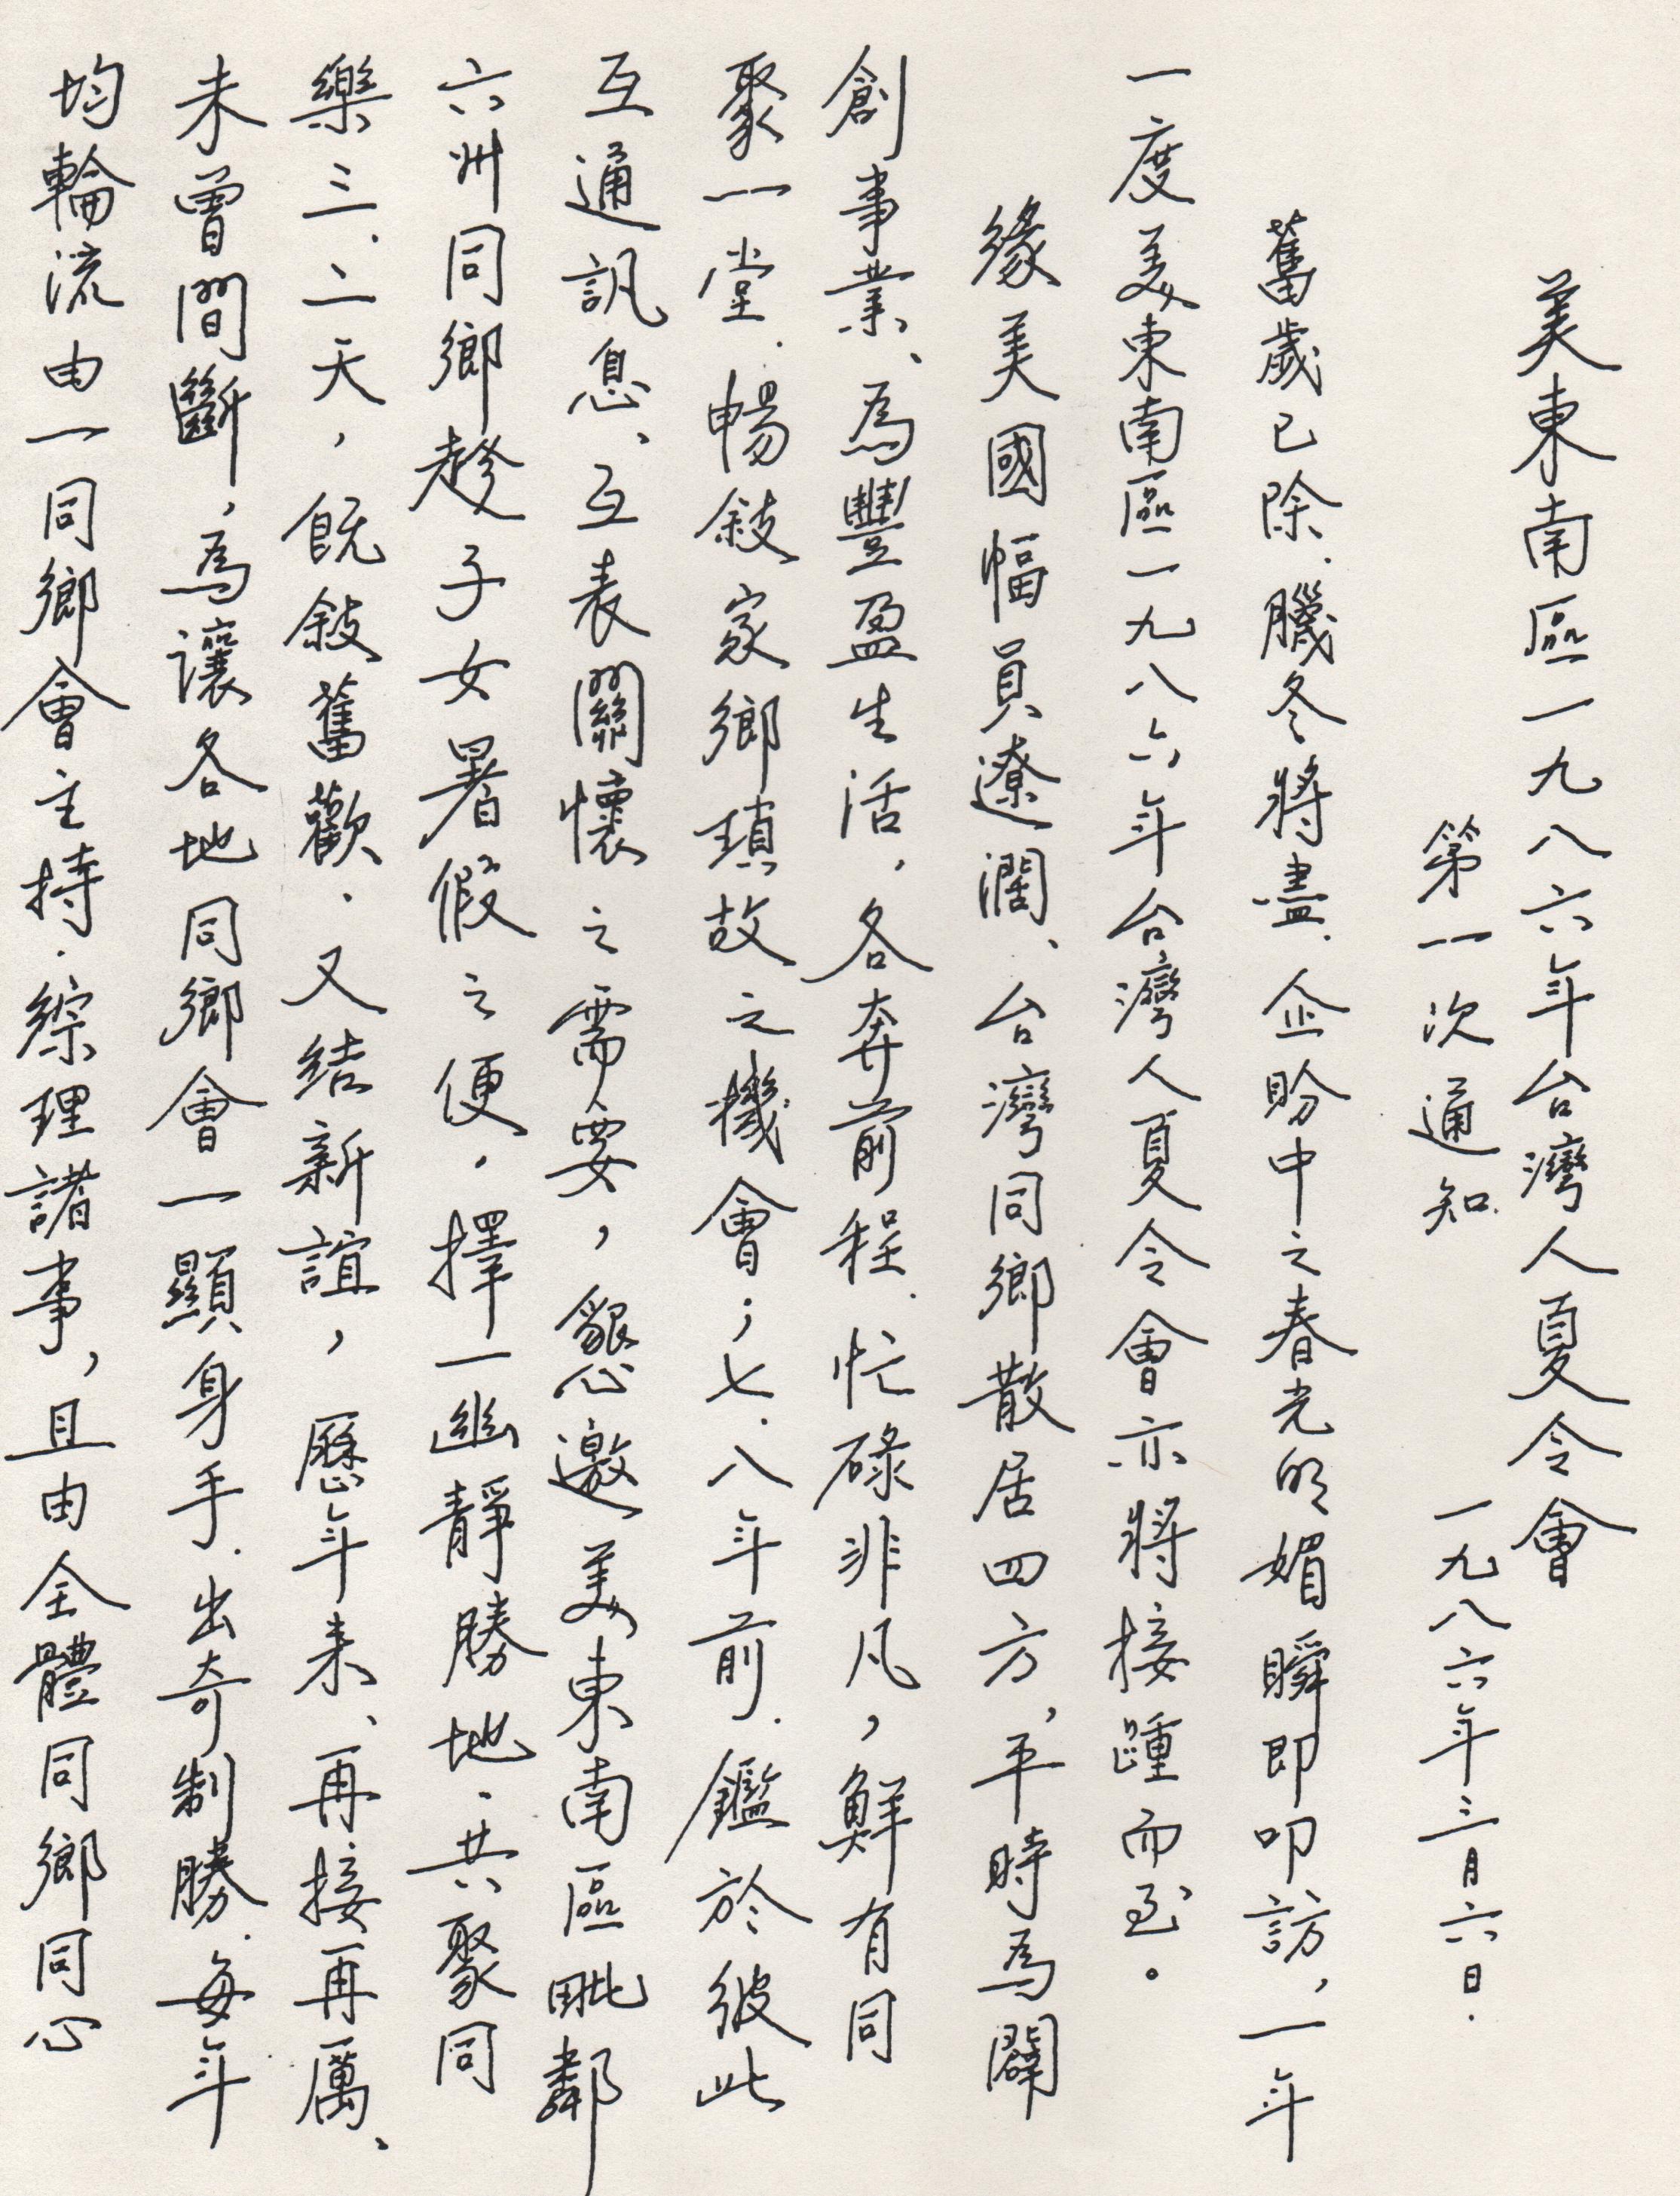 美東南區一九八六年台灣人夏令會
第一次通知 一九八六年三月六日.
舊歲已除.臘冬將盡.企盼中之春光明媚瞬即叩訪,一年
一度美東南區一九八六年台灣人夏令會亦將接踵而至。
緣美國幅員遼濶、台灣同鄉散居四方,平時為闢
創事業、為豐盈生活,各奔前程.忙碌非凡,鮮有同
聚一堂.暢敍家鄉瑣故之機會;七.八年前.鑑於彼此
互通訊息、互表關懷之需要,懇邀美東南區毗鄰
六州同鄉趁子女暑假之便.擇一幽靜勝地.共聚同
樂三.二天,既敍舊歡.又結新誼,歷年來、再接再厲、
未曾間斷,為讓各地同鄉會一顯身手.出奇制勝.每年
均輪流由一同鄉會主持.綜理諸事,且由全體同鄉同心